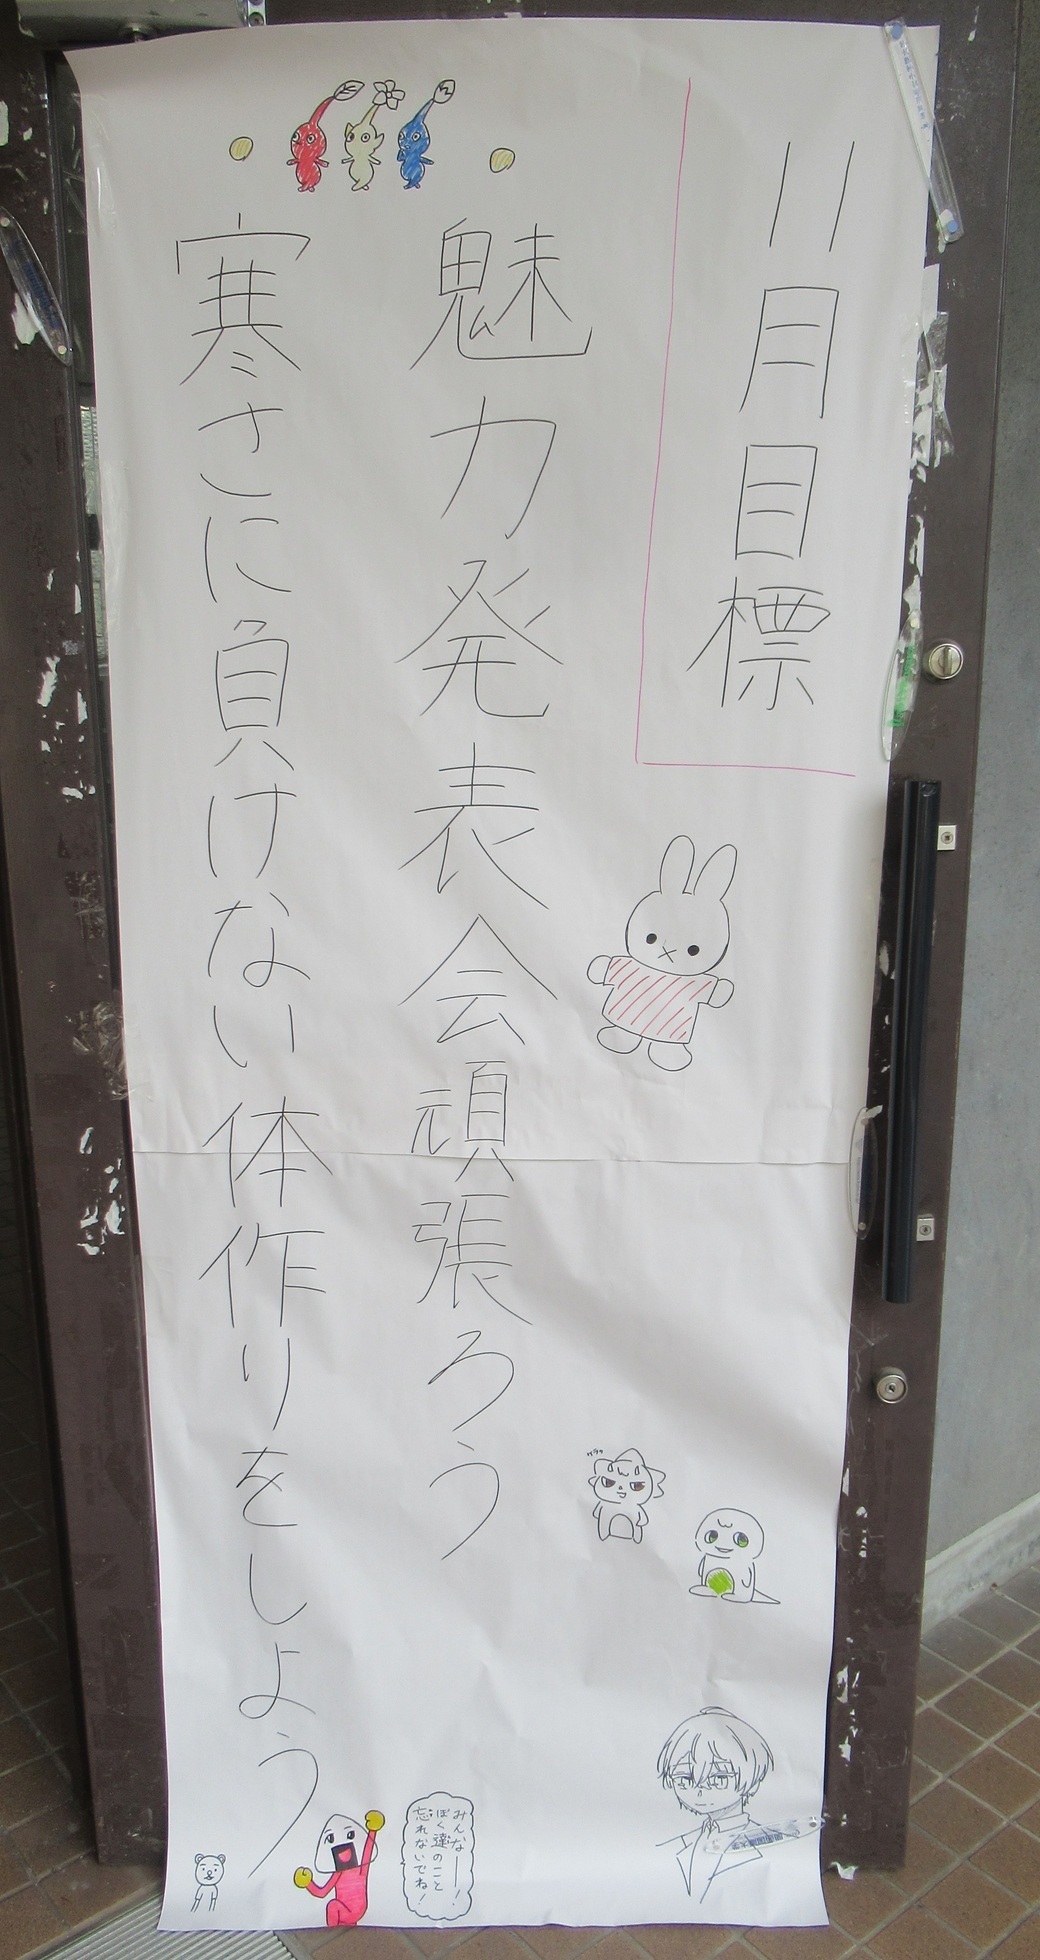 11月目標
魅力発表会頑張ろう
寒さに負けない体作りをしよう
みんなー!
ぼく達のこと
忘れないでね!